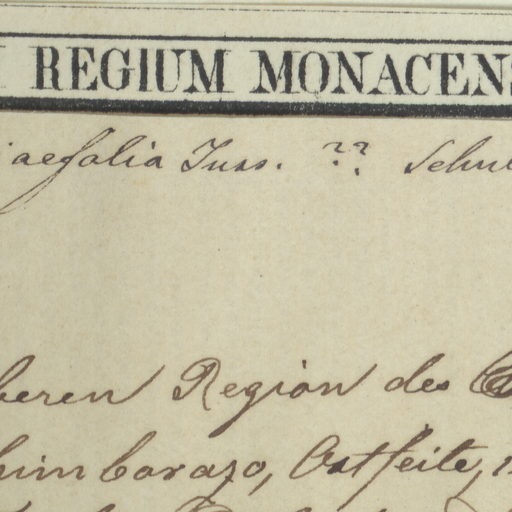 REGIUM MONACENS
iaefolia Juss. ?? Schul
beren Region des
himborazo, Ostseite,